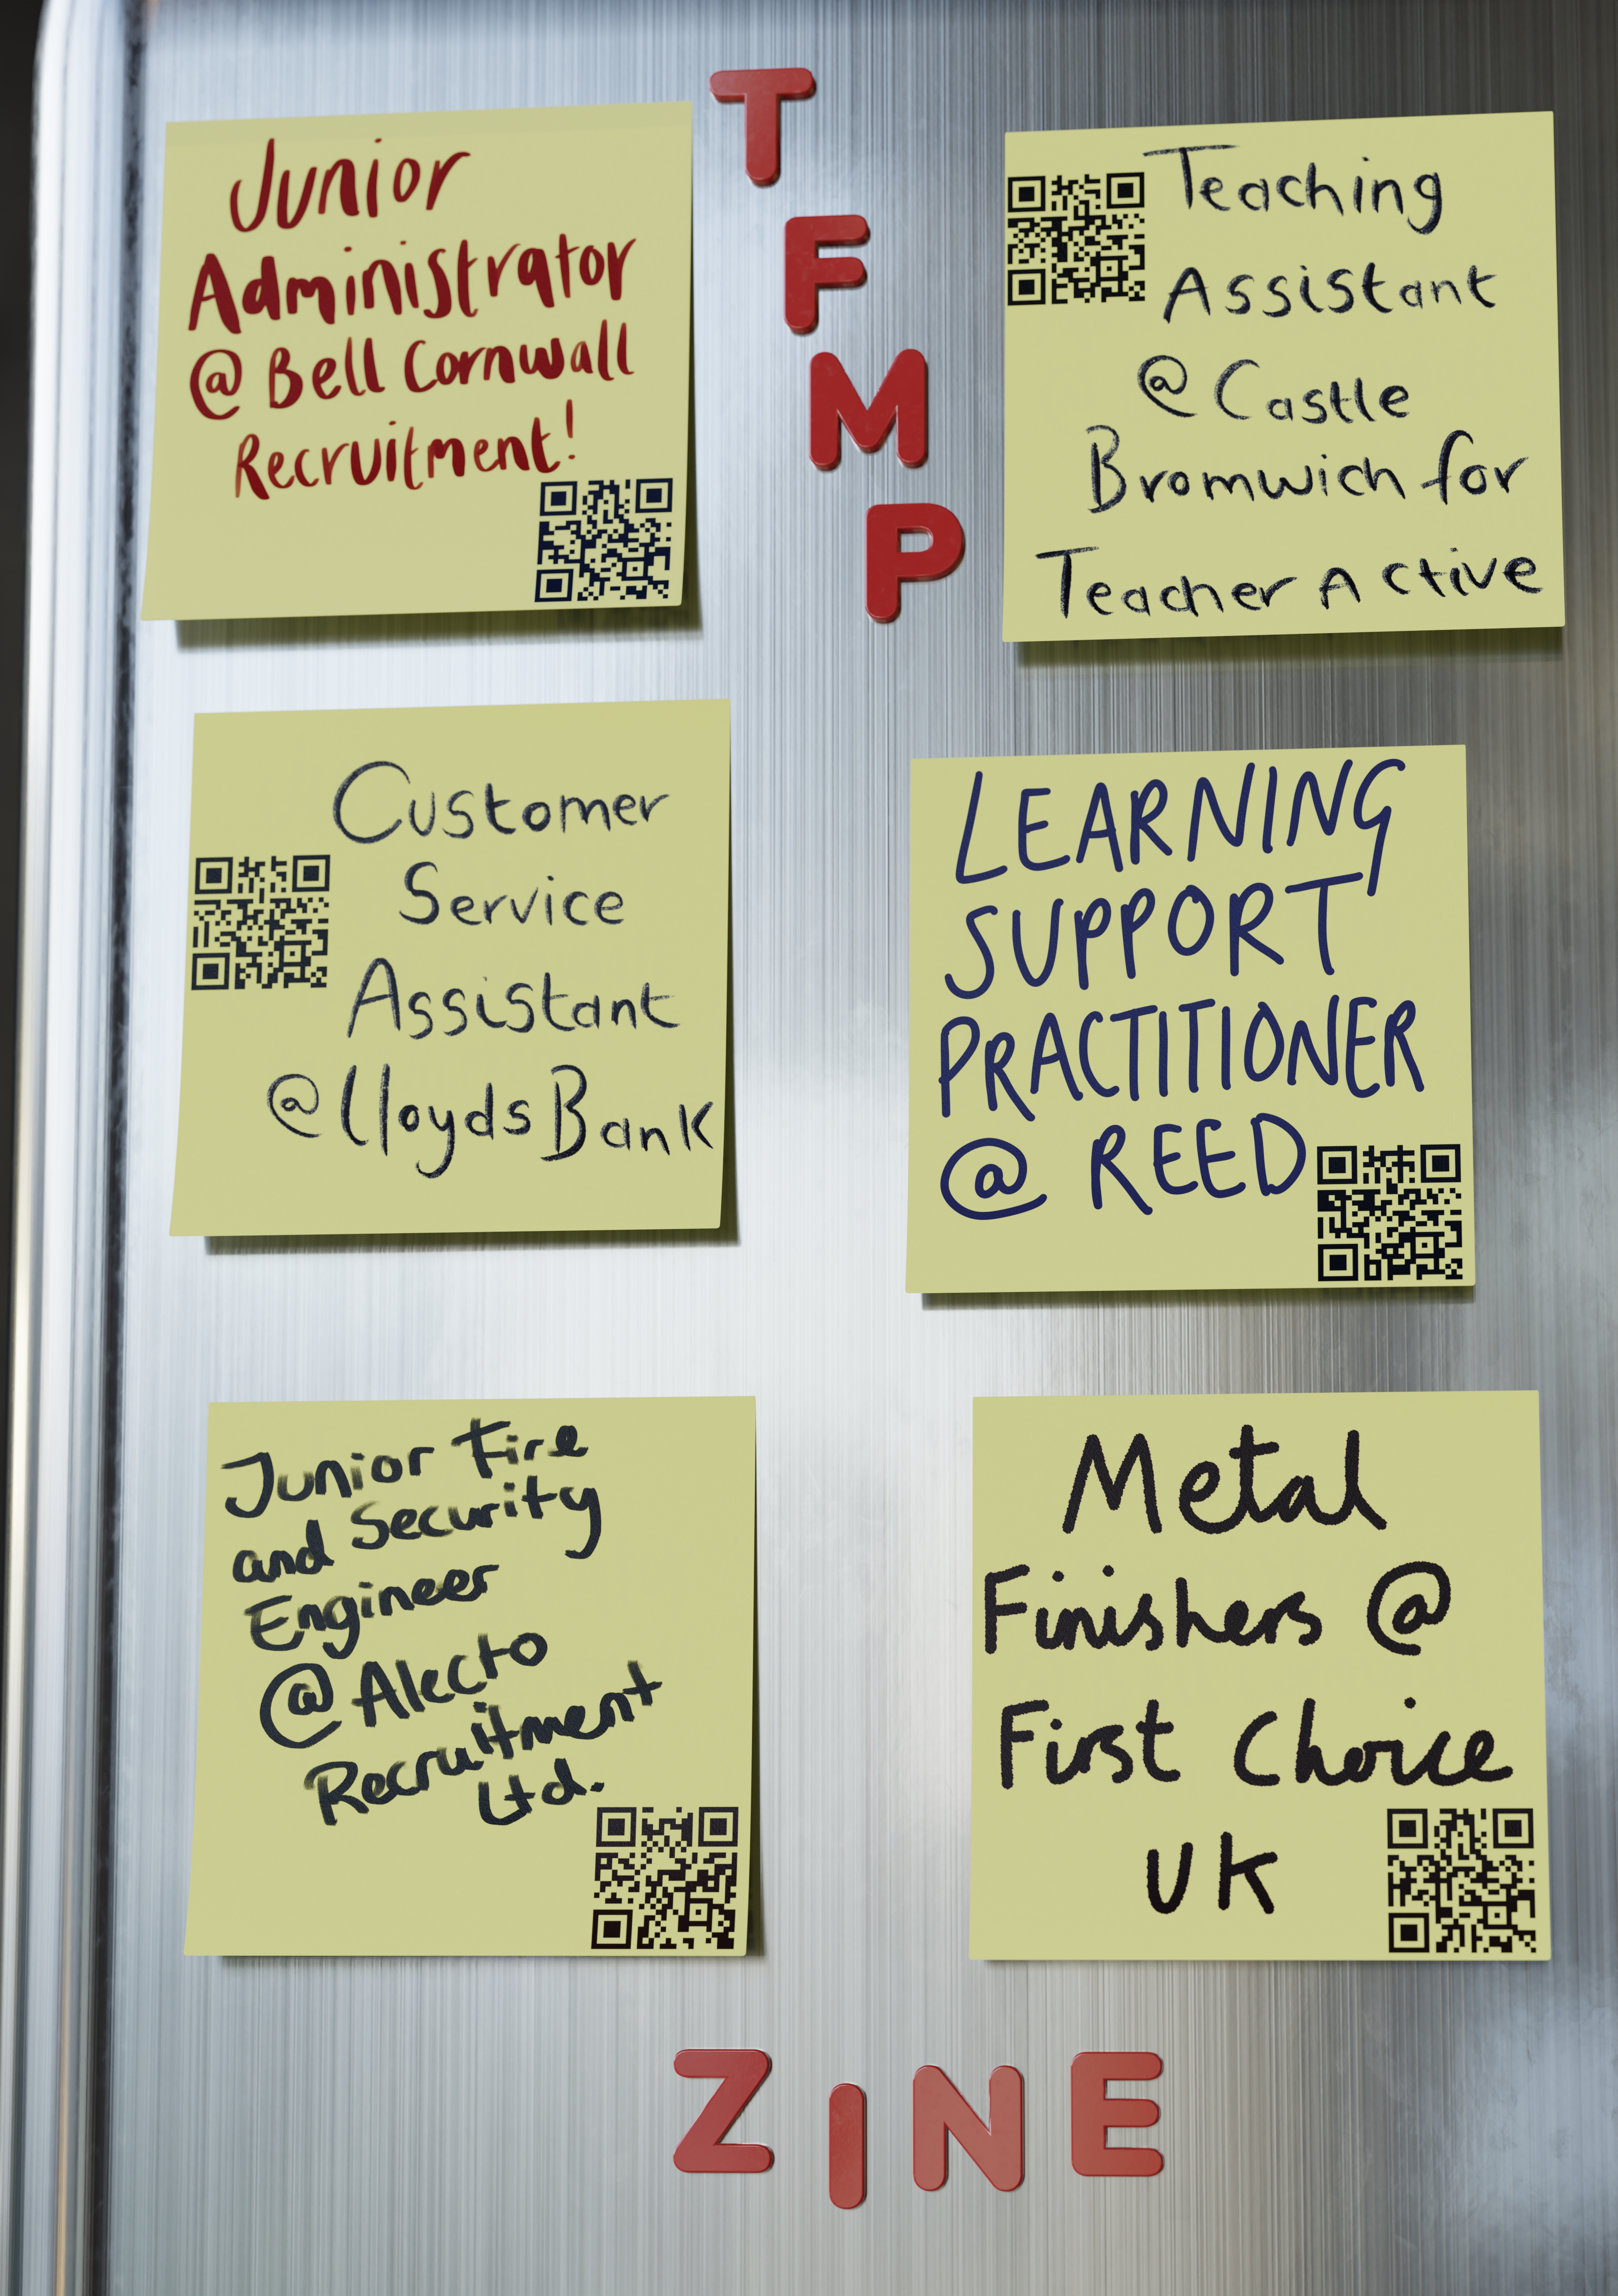 T
F
M
P
Junior
Administrator
@ Bell Cornwall
Recruitment!
Teaching
Assistant
@ Castle
Bromwich for
Teacher Active
Customer
Service
Assistant
@ Lloyds Bank
LEARNING
SUPPORT
PRACTITIONER
@ REED
Junior Fire
and Security
Engineer
@ Alecto
Recruitment
Ltd.
Metal
Finishers @
First Choice
UK
ZINE